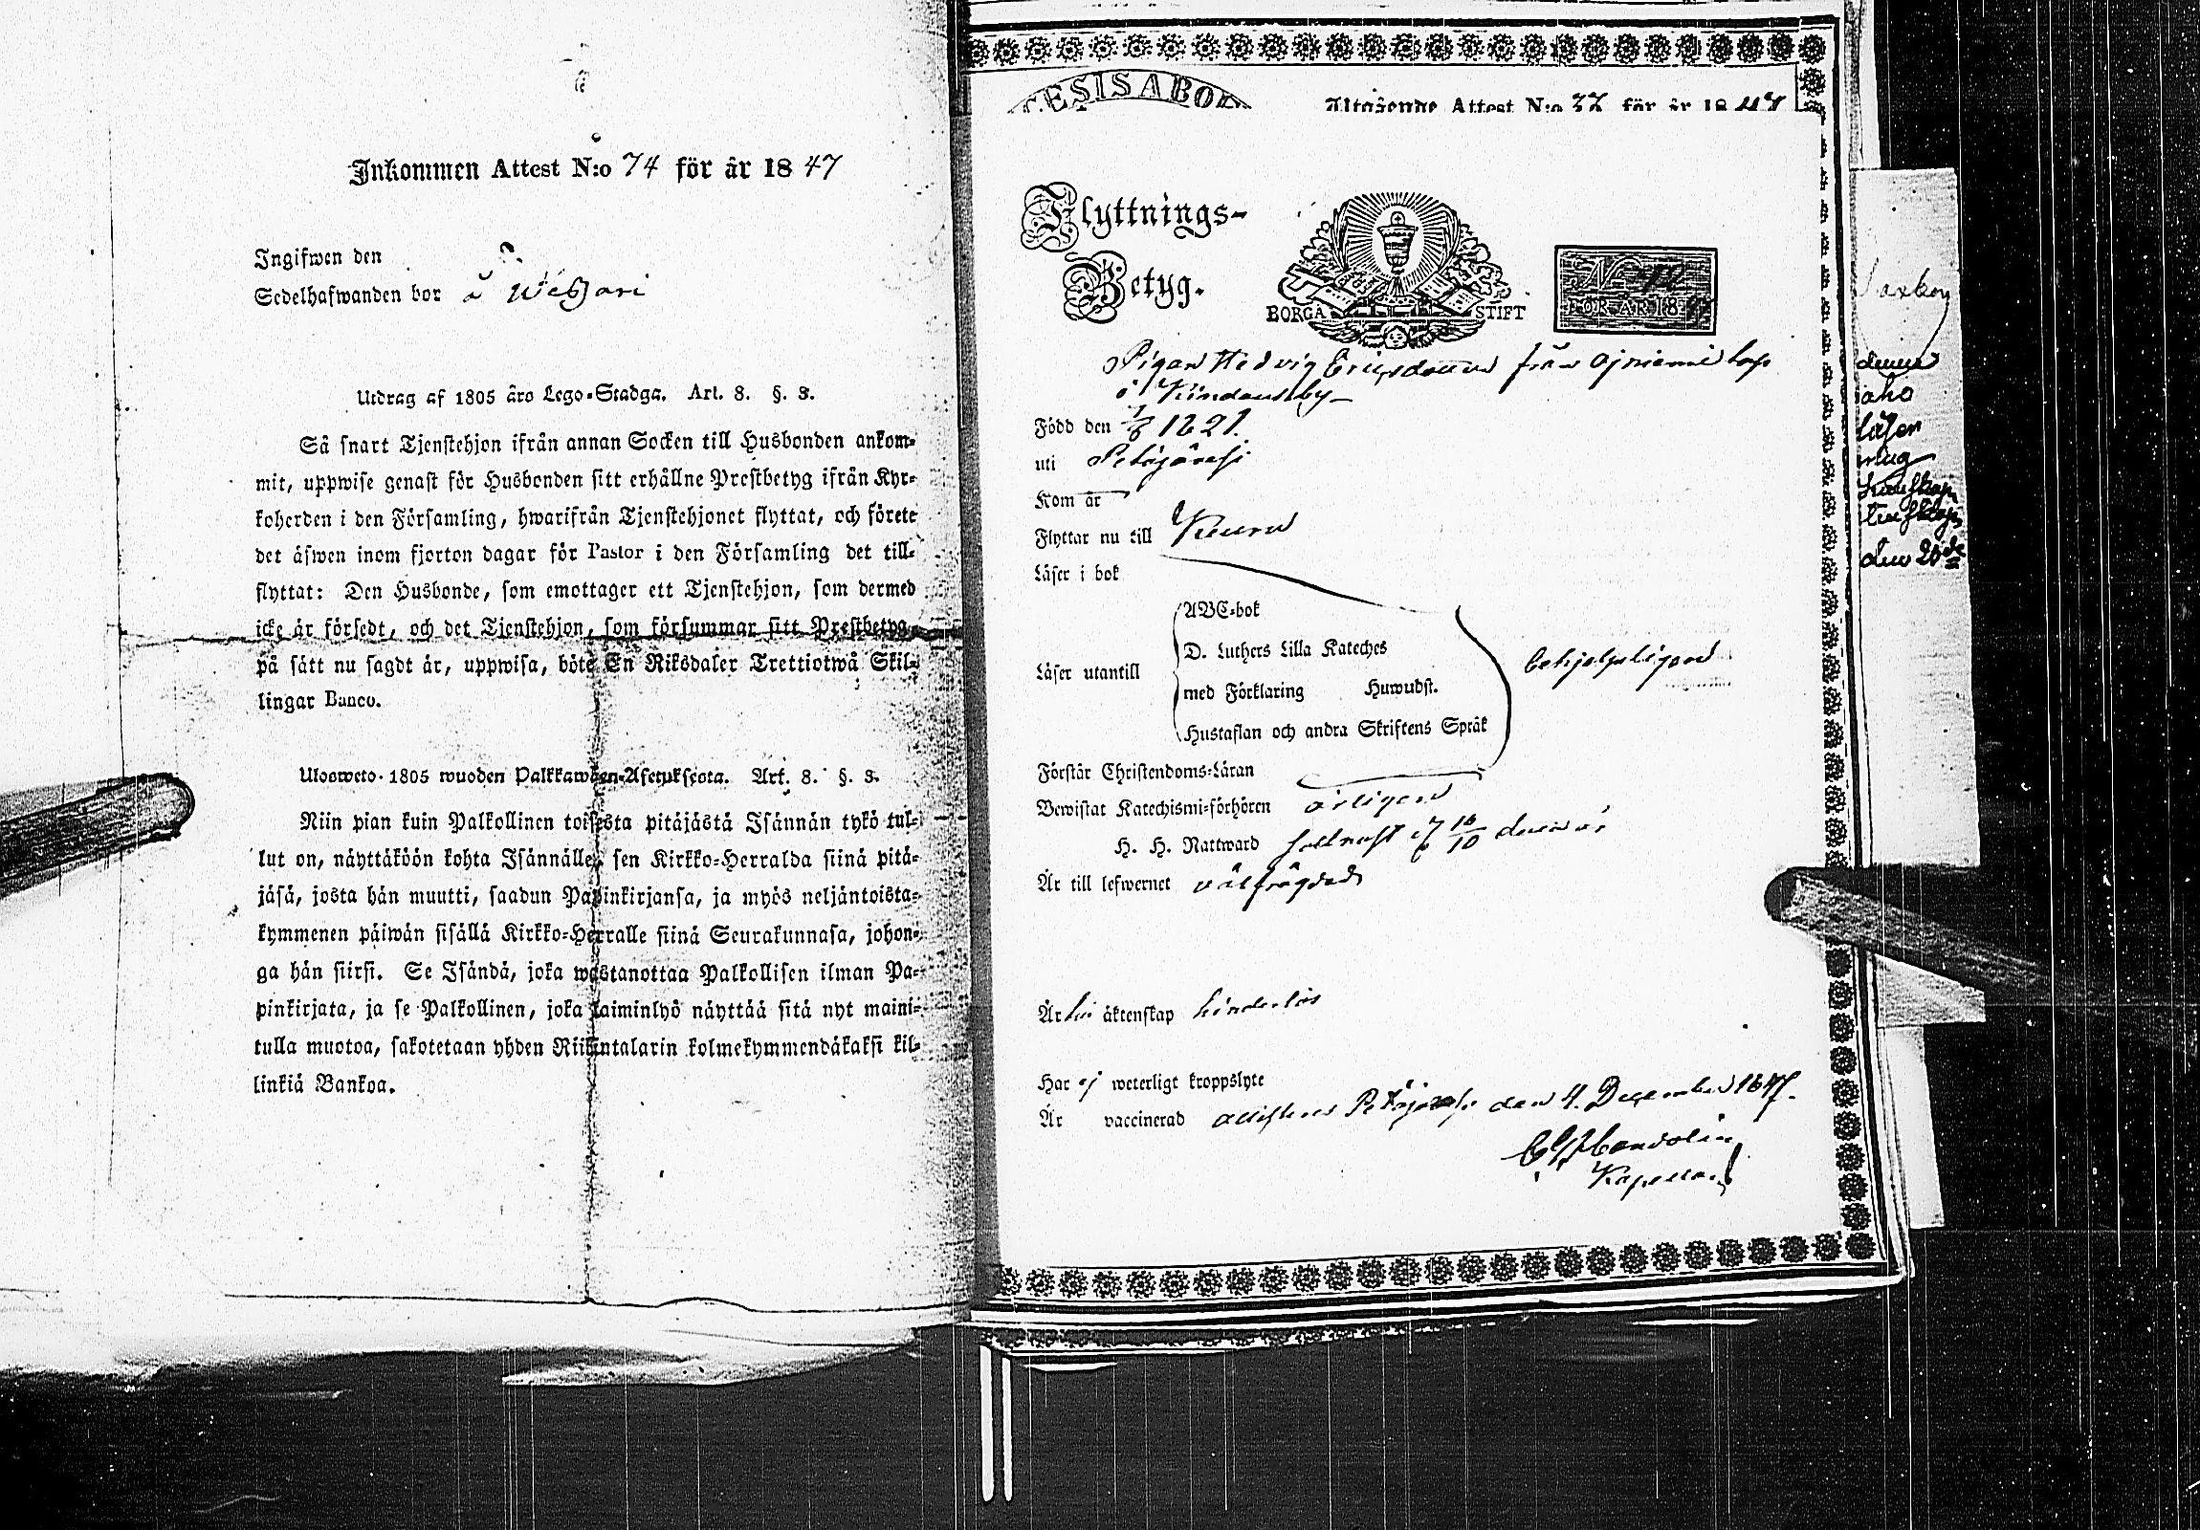 Inkommen Attest N:o 74 för år 1847
Ingifwen den
Sedelhafwanden bor å
Utdrag af 1805 års Lego-Stadga. Art. 8. §. 3.
Så snart Tjenstehjon ifrån annan Socken till Husbonden ankom-
mit, uppwise genast för Husbonden sitt erhållne Prestbetyg ifrån Kyr-
koherden i den Församling, hwarifrån Tjenstehjonet flyttat, och förete
det äfwen inom fjorton dagar för Pastor i den Församling det till-
flyttat: Den Husbonde, som emottager ett Tjenstehjon, som dermed
icke är försedt, och det Tjenstehjon, som försummar sitt Prestbetyg,
på sätt nu sagdt är, uppwisa, böte En Riksdaler Trettiotwå Skil-
lingar Banco.
Ulosweto 1805 wuoden Palkkawäen-Asetuksesta. Art. 8. §. 3.
Niin pian kuin Palkollinen toisesta pitäjästä Isännän tykö tul-
lut on, näyttäköön kohta Isännälle, sen Kirkko-Herralda siinä pitä-
jäsä, josta hän muutti, saadun Papinkirjansa, ja myös neljäntoista-
kymmenen päiwän sisällä Kirkko-Herralle siinä Seurakunnasa, johon-
ga hän siirsi. Se Isändä, joka wastanottaa Palkollisen ilman Pa-
pinkirjata, ja se Palkollinen, joka laiminlyö näyttää sitä nyt maini-
tulla muotoa, sakotetaan yhden Riikintalarin kolmekymmendäkaksi kil-
linkiä Bankoa.
CESIS ABO
Afgående Attest N:o 77 för år 1847
Flyttnings-
Betyg.
BORGÅ STIFT
FÖR ÅR 18
Pigan Hedvig Ericsdotter från
Född den 1/6 1821.
uti Petäjävesi
Kom år
Flyttar nu till Keuru
Läser i bok
ABC-bok
D. Luthers Lilla Kateches
Läser utantill
med Förklaring Huwudst.
Hustaflan och andra Skriftens Språk
behjelpligen
Förstår Christendoms-Läran
Bewistat Katechismi-förhören årligen
H. H. Nattward
Är till lefwernet välfrägdad
Är till äktenskap hinderlös
Har ej weterligt kroppslyte
Är vaccinerad attesteras Petäjävesi den 4. December 1847.
Kapellan
den 20de